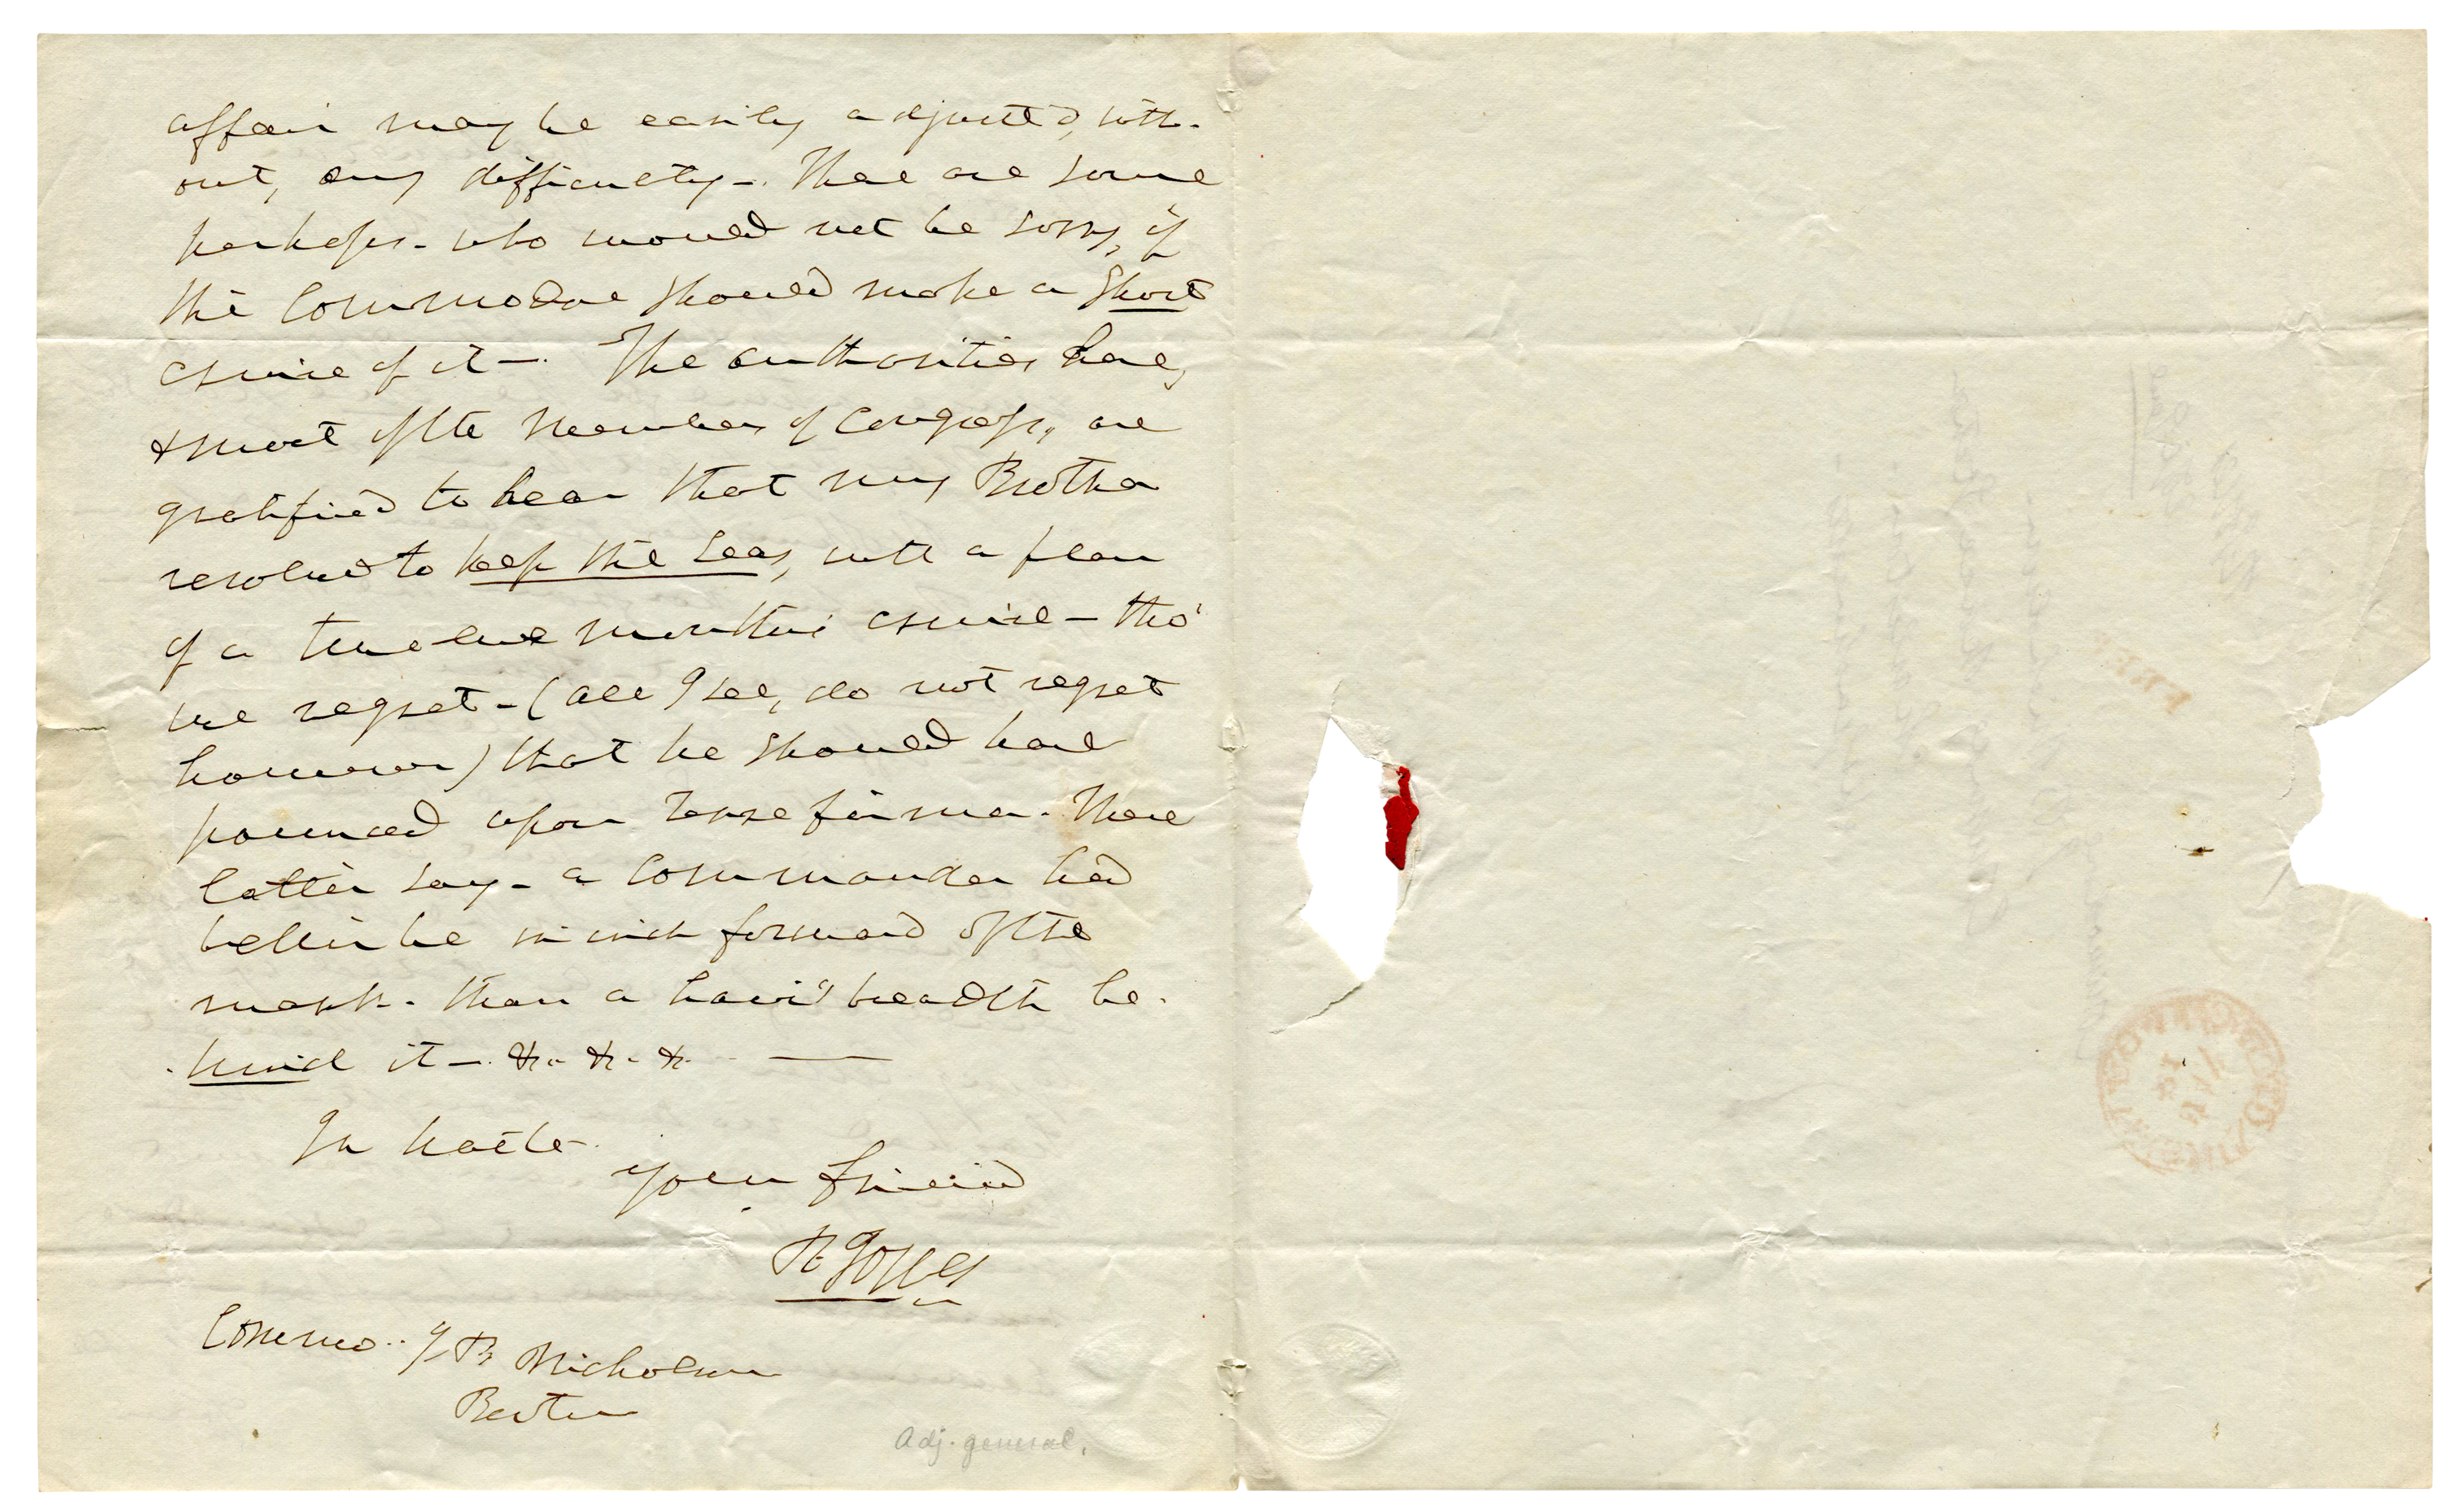 affair may be easily adjusted, with-
out, any difficulty—. There are some
perhaps- who would not be sorry, if
the Commodore should make a short
cruise of it—. The authorities here,
& most of the Members of Congress, are
gratified to hear that my Brother
resolved to keep the Seas, with a plan
of a twelve months cruise— tho'
we regret- (all I see, do not regret
however) that he should have
pounced upon Terra firma. These
latter say- a Commander had
better be an inch forward of the
mark- than a hair's breadth be-
hind it—. &c. &c. &c.
In haste.
your friend
R Jones
Commo. J B Nicholson
Boston
Adj. general.
FREE
JAN